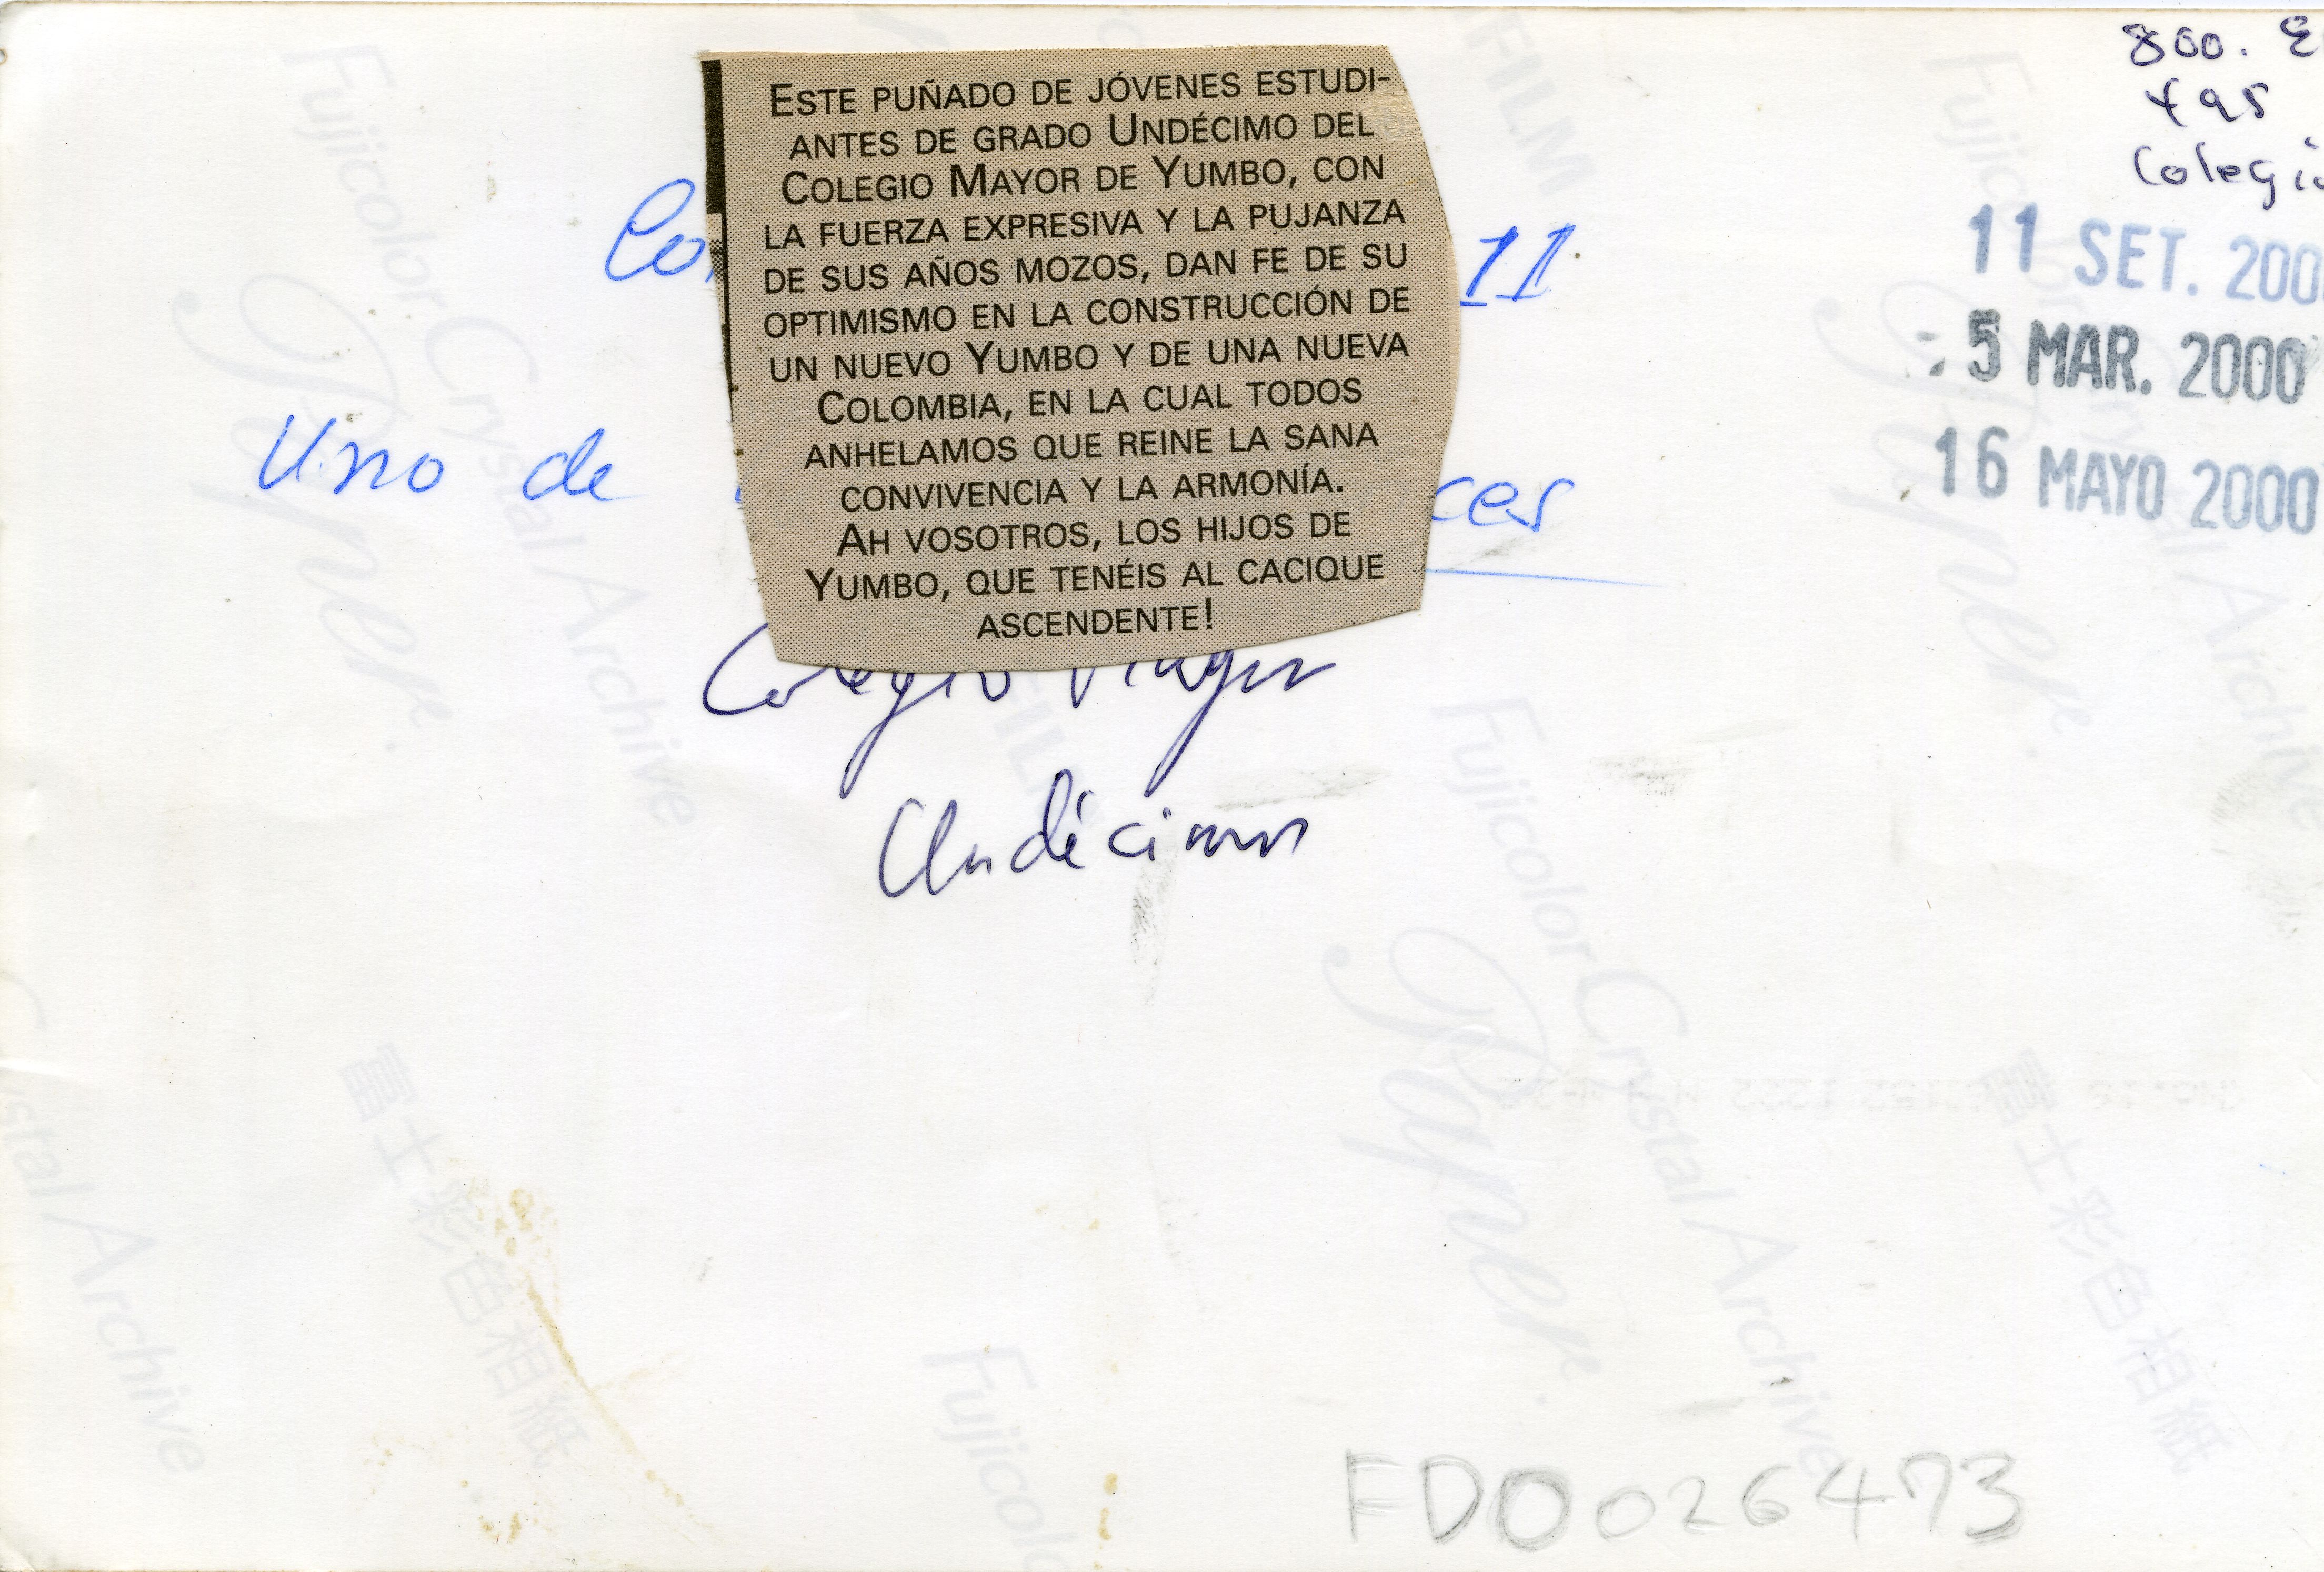 800. E
Yas
Colegio
11 SET. 200
- 5 MAR. 2000
16 MAYO 2000
ESTE PUÑADO DE JÓVENES ESTUDI-
ANTES DE GRADO UNDÉCIMO DEL
COLEGIO MAYOR DE YUMBO, CON
LA FUERZA EXPRESIVA Y LA PUJANZA
DE SUS AÑOS MOZOS, DAN FE DE SU
OPTIMISMO EN LA CONSTRUCCIÓN DE
UN NUEVO YUMBO Y DE UNA NUEVA
COLOMBIA, EN LA CUAL TODOS
ANHELAMOS QUE REINE LA SANA
CONVIVENCIA Y LA ARMONÍA.
AH VOSOTROS, LOS HIJOS DE
YUMBO, QUE TENÉIS AL CACIQUE
ASCENDENTE!
Co 11
Uno de ces
Colegio Mayor
Undécimo
Fujicolor Crystal Archive
Paper
FUJIFILM
富士彩色相紙
FD0026473